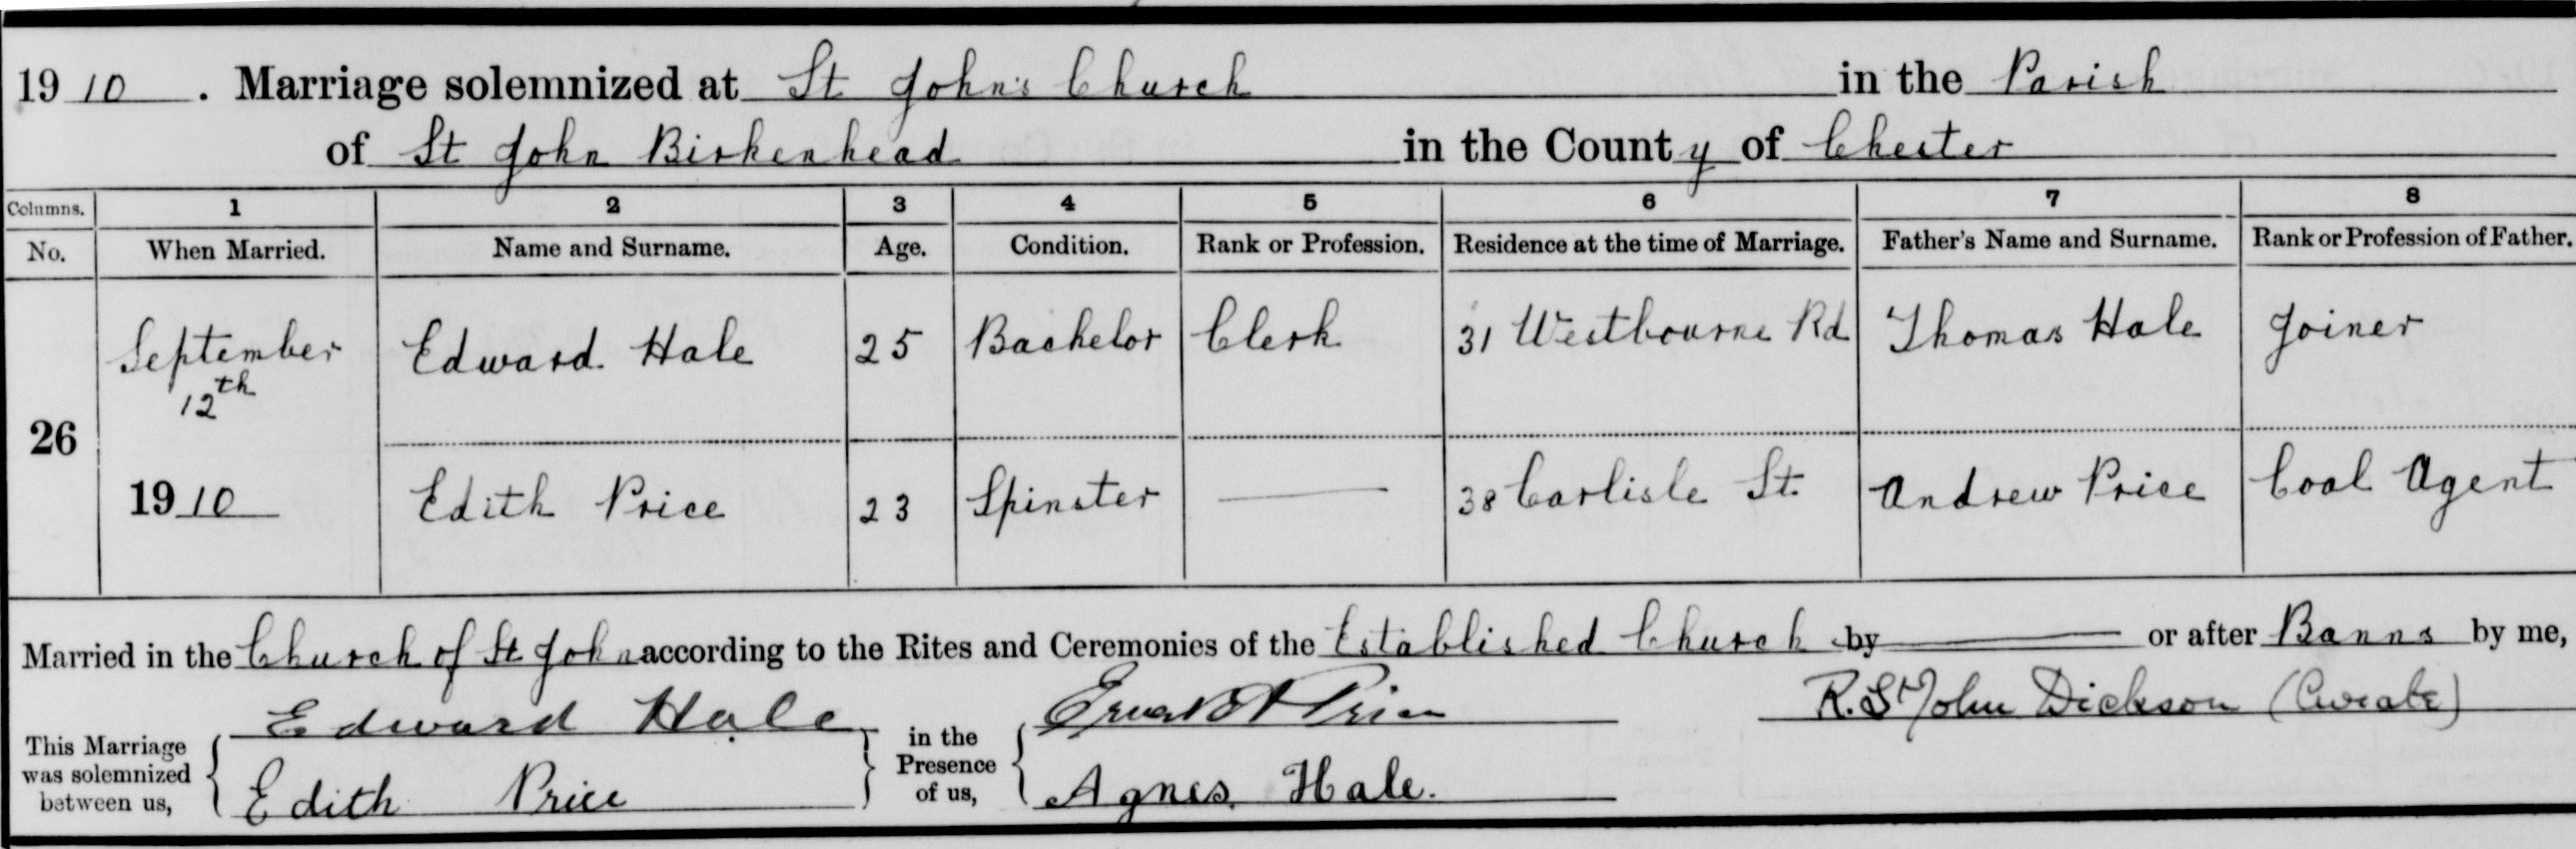 1910. Marriage solemnized at St John's Church in the Parish
of St John Birkenhead in the County of Chester
Columns. 1 2 3 4 5 6 7 8
No. When Married. Name and Surname. Age. Condition. Rank or Profession. Residence at the time of Marriage. Father's Name and Surname. Rank or Profession of Father.
September Edward Hale 25 Bachelor Clerk 31 Westbourne Rd Thomas Hale Joiner
12th
26
1910 Edith Price 23 Spinster 38 Carlisle St. Andrew Price Coal Agent
Married in the Church of St John according to the Rites and Ceremonies of the Established Church by or after Banns by me,
Edward Hale Price R. St John Dickson (Curate)
This Marriage was solemnized between us, in the Presence of us,
Edith Price Agnes Hale.